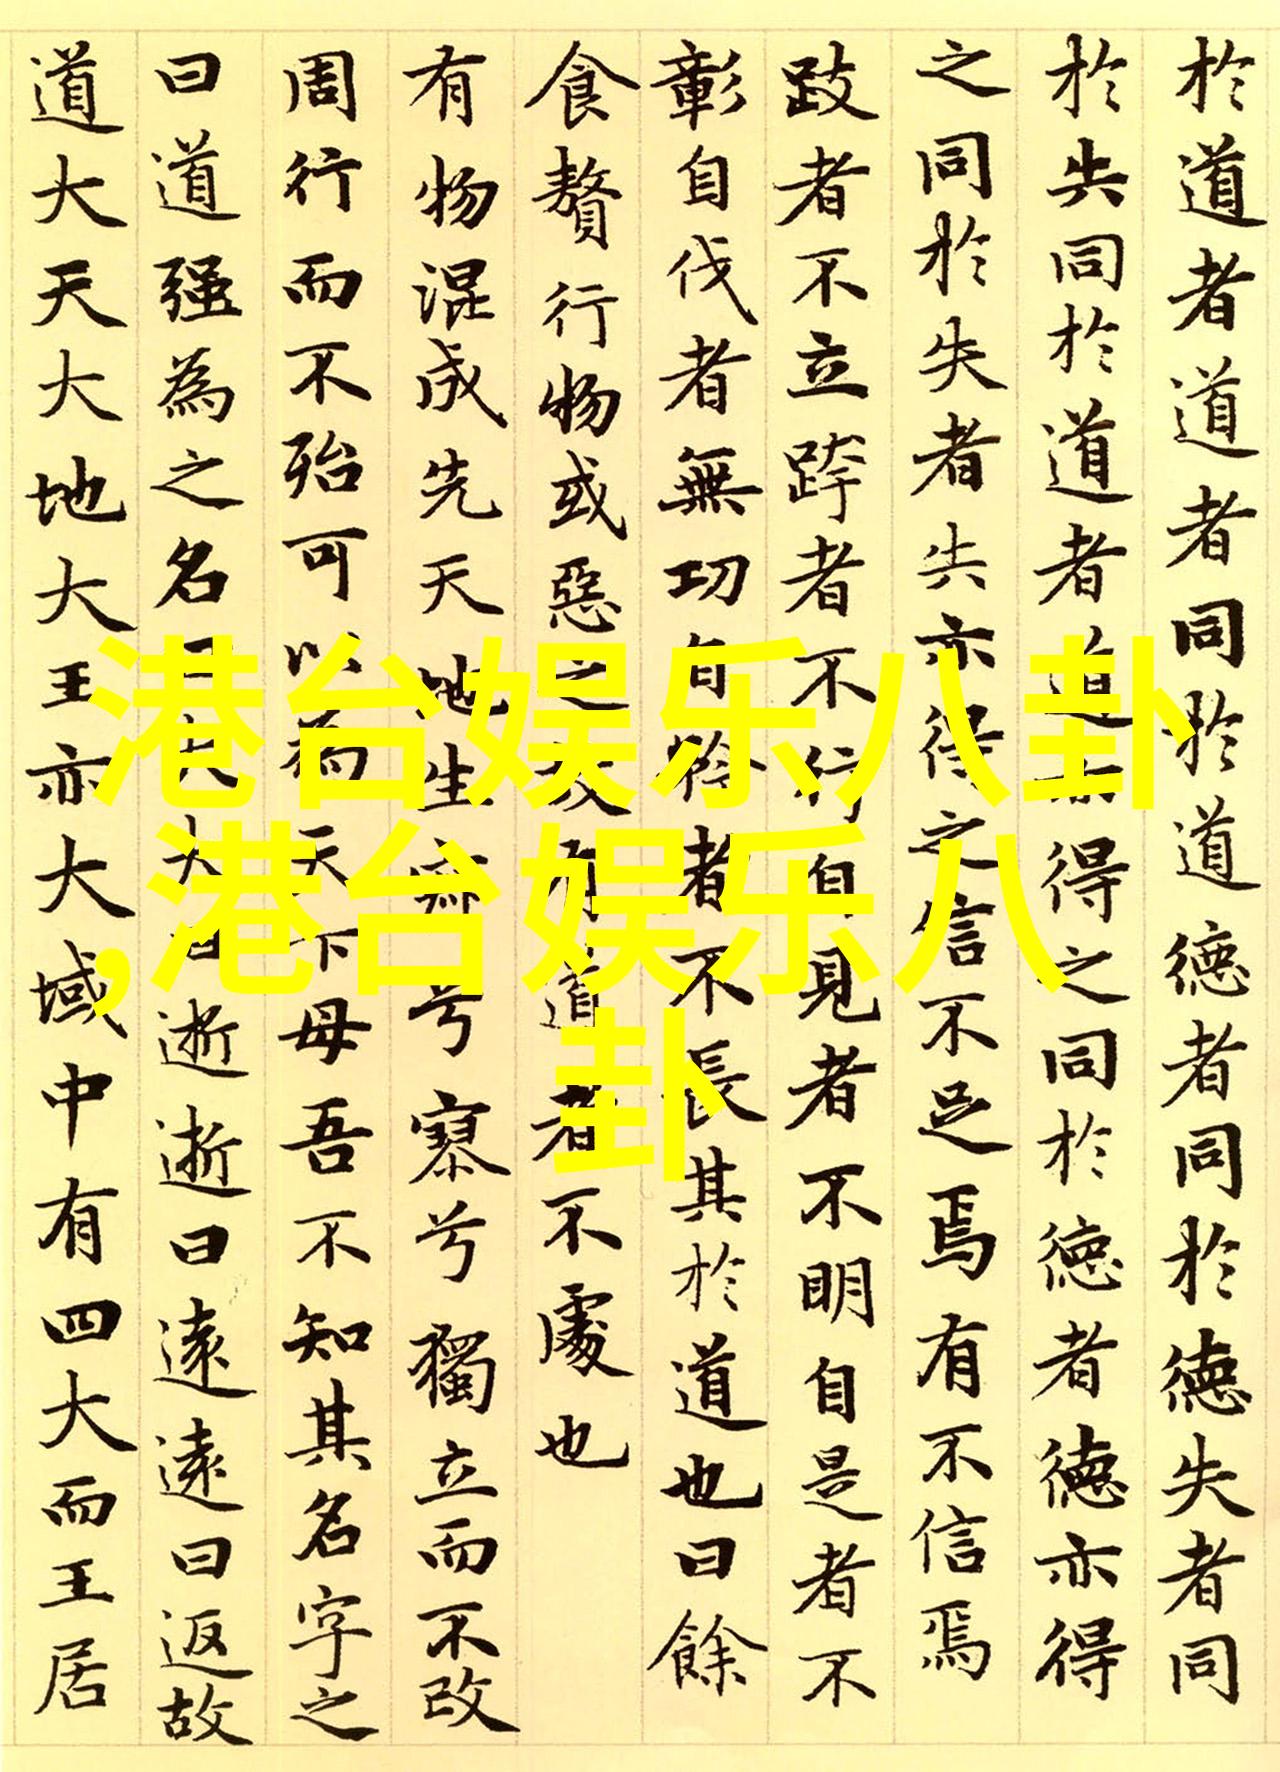 於道者道者同於道德者同於德失者同
於失同於道者道亦得之同於德者德亦得
之同於失者失亦得之信不足焉有不信焉
跂者不立跨者不行自見者不明自是者不
彰自伐者無功自矜者不長其於道也曰餘
食贅行物或惡之故有道者不處也
有物混成先天地生寂兮寥兮獨立而不改
周行而不殆可以為天下母吾不知其名字之
曰道强為之名曰大大曰逝逝曰遠遠曰返故
道大天大地大王亦大域中有四大而王居
港台娱乐八卦
,港台娱乐八
卦